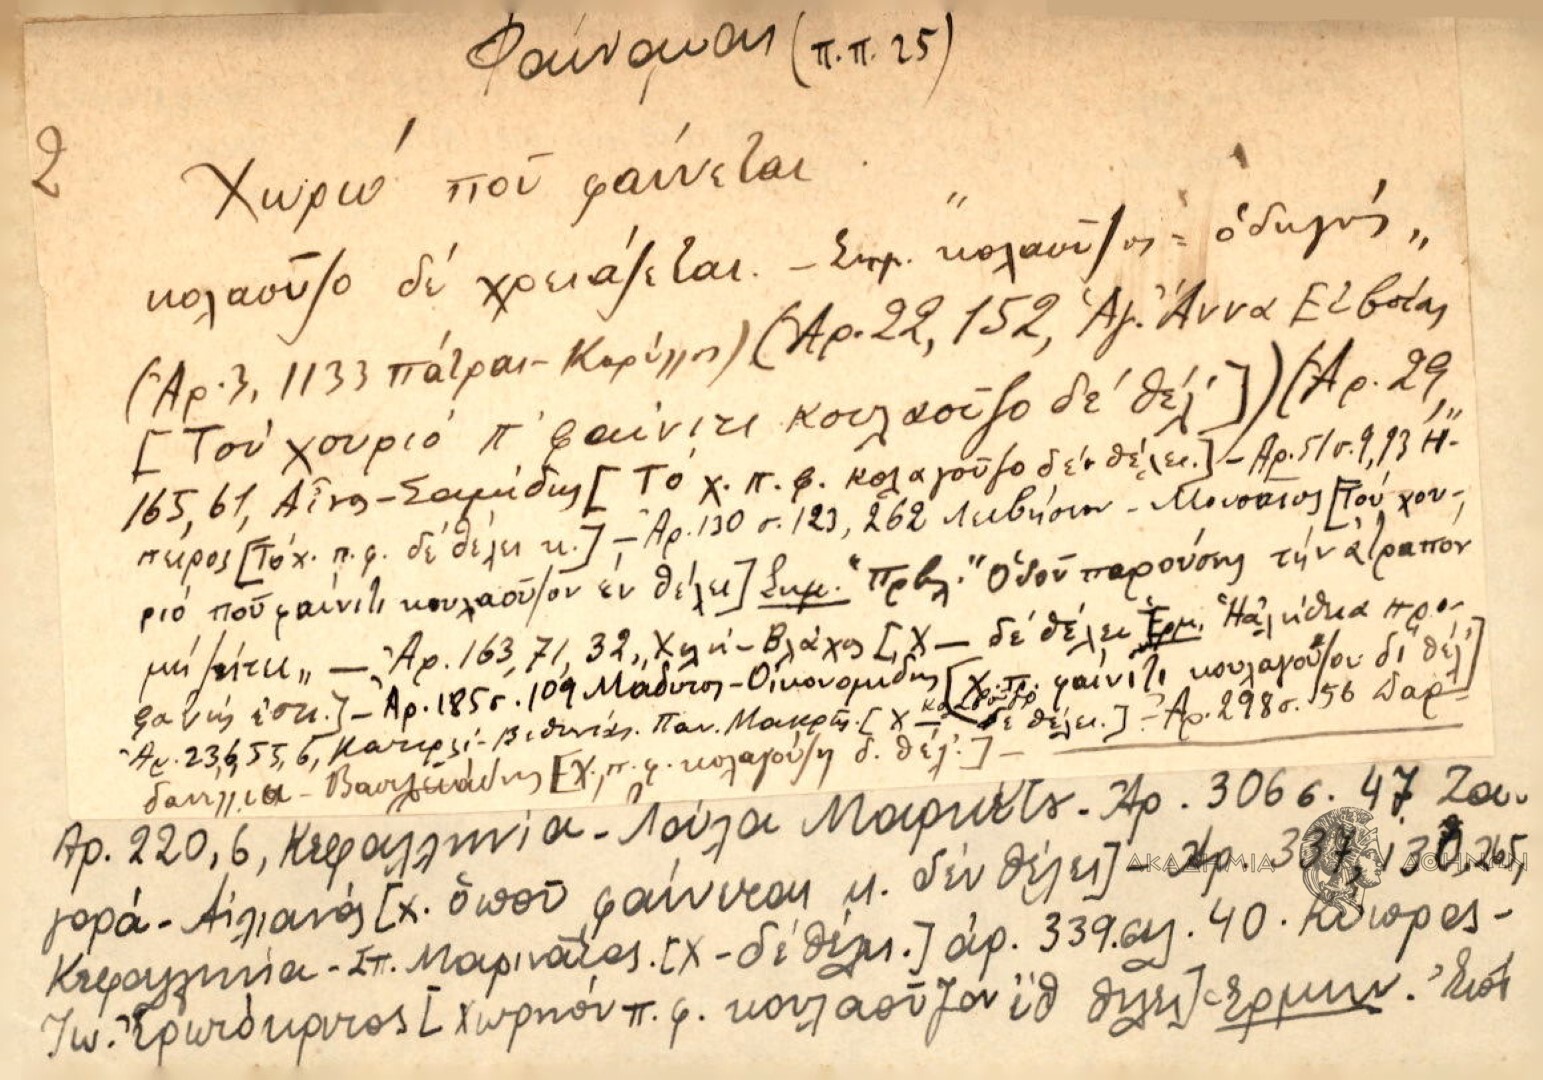 Φαίνομαι (π.π. 25)
2
Χωριό ποῦ φαίνεται
κολαοῦζο δέ χρειάζεται. – Σημ. "κολαοῦζος = ὁδηγός"
(Ἀρ. 3, 1133 Πάτραι – Κορύλλος) (Ἀρ. 22, 152, Ἁγ. Ἄννα Εὐβοίας
[Τού χουριό π' φαίνιτι κουλαοῦζο δέ θέλ'] ) (Ἀρ. 29,
165, 61, Αἶνος – Σαμίδης [Τό χ. π. φ. κολαγοῦζο δέν θέλει.] – Ἀρ. 51 σ. 9, 93 Ἤ-
πειρος [Τό χ. π. φ. δέ θέλει κ.] – Ἀρ. 130 σ. 123, 262 Λιβήσιον – Μουσαῖος [Τού χου-
ριό ποῦ φαίνιτι κουλαοῦζον ἐν θέλει] Σημ. "Πρβλ." Ὁδοῦ παρούσης τήν ἀτραπόν
μή ζήτει" – Ἀρ. 163, 71, 32, Χηλή – Βλάχος [Χ – δέ θέλει Ἑρμ. Ἡ ἀλήθεια προ-
φανής ἐστι.] – Ἀρ. 185 σ. 109 Μάδυτος – Οἰκονομίδης [χ. π. φαίνιτι κουλαγοῦζου δέ θέλ']
Ἀρ. 236, 55, 6, Κατιρλί – Βιθυνίας. Παν. Μακρῆς. [Χ – δε θέλει.] – Ἀρ. 298 σ. 56 Δαρ-
δανέλλια – Βασιλειάδης [Χ. π. φ. κολαγούζη δ. θέλ'.] –
Ἀρ. 220, 6, Κεφαλληνία – Λούλα – Ἀρ. 306 σ. 47 Ζα-
γορά – Αἰλιανός [χ. ὁποῦ φαίνεται κ. δέν θέλει] – Ἀρ. 337, 265,
Κεφαλληνία – Σπ. Μαρινᾶτος. [Χ – δέ θέλει.] ἀρ. 339. σελ. 40. Κύπρος –
Ἰω. Ἐρωτόκριτος [Χωρκόν π. φ. κουλαοῦζον ἐθ θέλει] – Ἑρμην. Ἐπί
ΑΚΑΔΗΜΙΑ ΑΘΗΝΩΝ